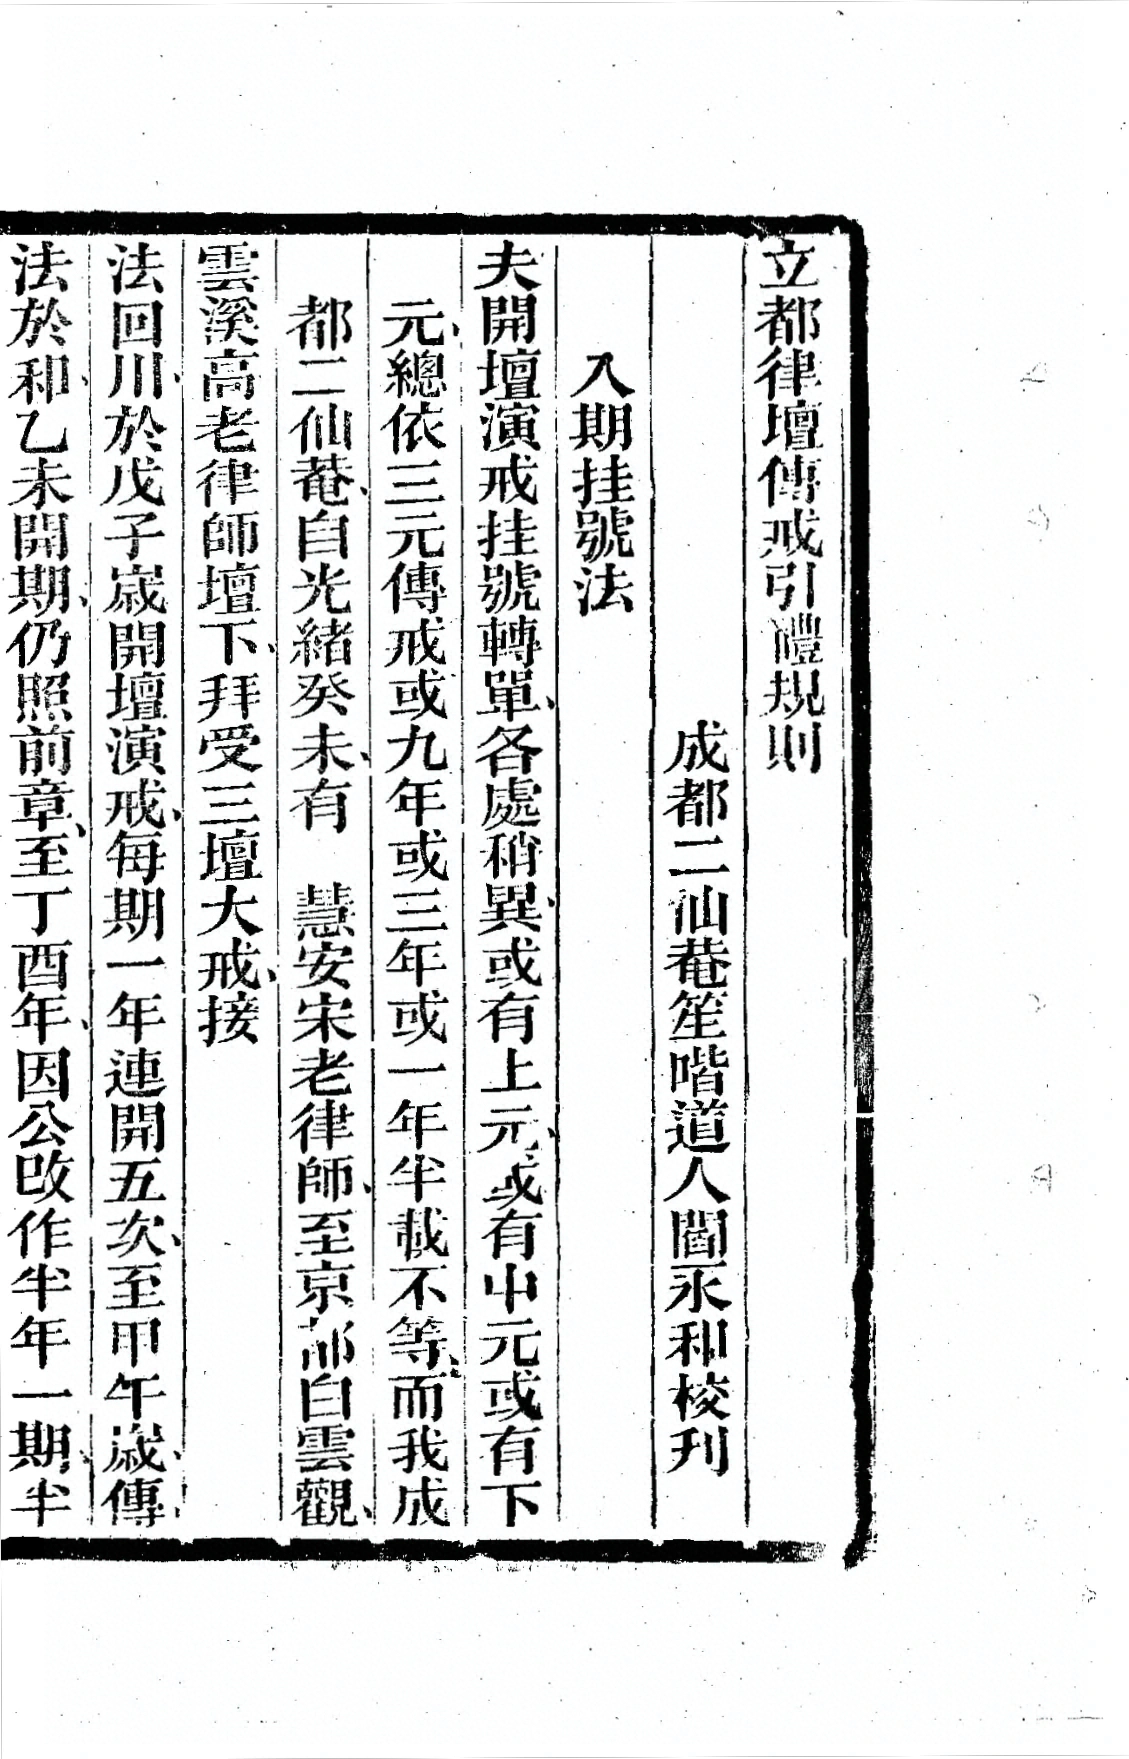 立都律壇傳戒引禮規則
成都二仙菴笙喈道人閻永和校刊
入期挂號法
夫開壇演戒挂號轉單、各處稍異、或有上元、或有中元或有下
元、總依三元傳戒或九年或三年或一年半載不等、而我成
都二仙菴、自光緒癸未、有　慧安宋老律師、至京都白雲觀、
雲溪高老律師壇下、拜受三壇大戒、接
法回川、於戊子歲開壇演戒、每期一年連開五次、至甲午歲、傳
法於和、乙未開期、仍照前章、至丁酉年、因公改作半年一期、半